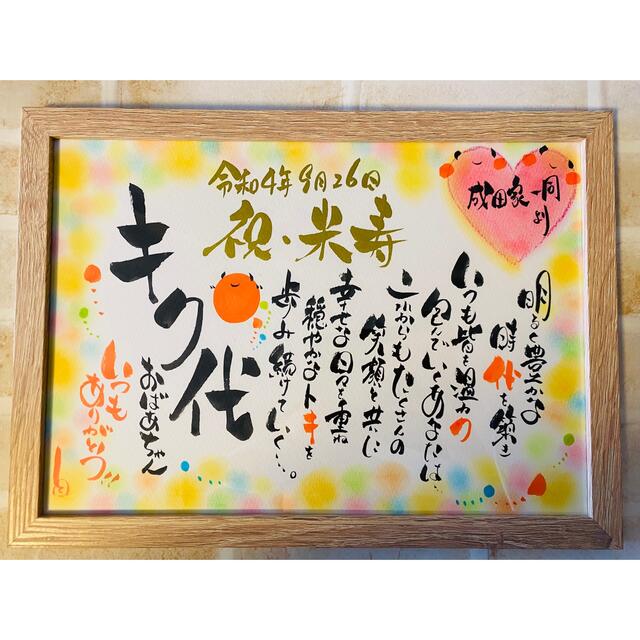 令和4年9月26日
祝・米寿
成田家一同より
明るく豊かな
時代を築き
いつも皆を温かク
包んでいくあなたは…
これからもたくさんの
笑顔と共に
幸せな日々を重ね
穏やかなトキを
歩み続けていく…。
キク代
おばあちゃん
いつも
ありがとう